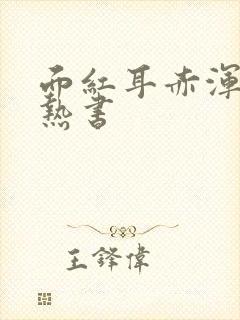 面紅耳赤渾
熱書
王鋒偉